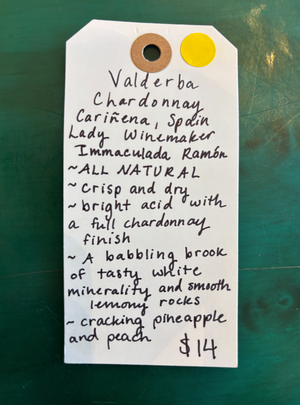 Valderba
Chardonnay
Cariñena, Spain
Lady Winemaker
Immaculada Ramón
~ALL NATURAL
~crisp and dry
~bright acid with
a full chardonnay
finish
~ A babbling brook
of tasty white
minerality and smooth
lemony rocks
~cracking pineapple
and peach
$14